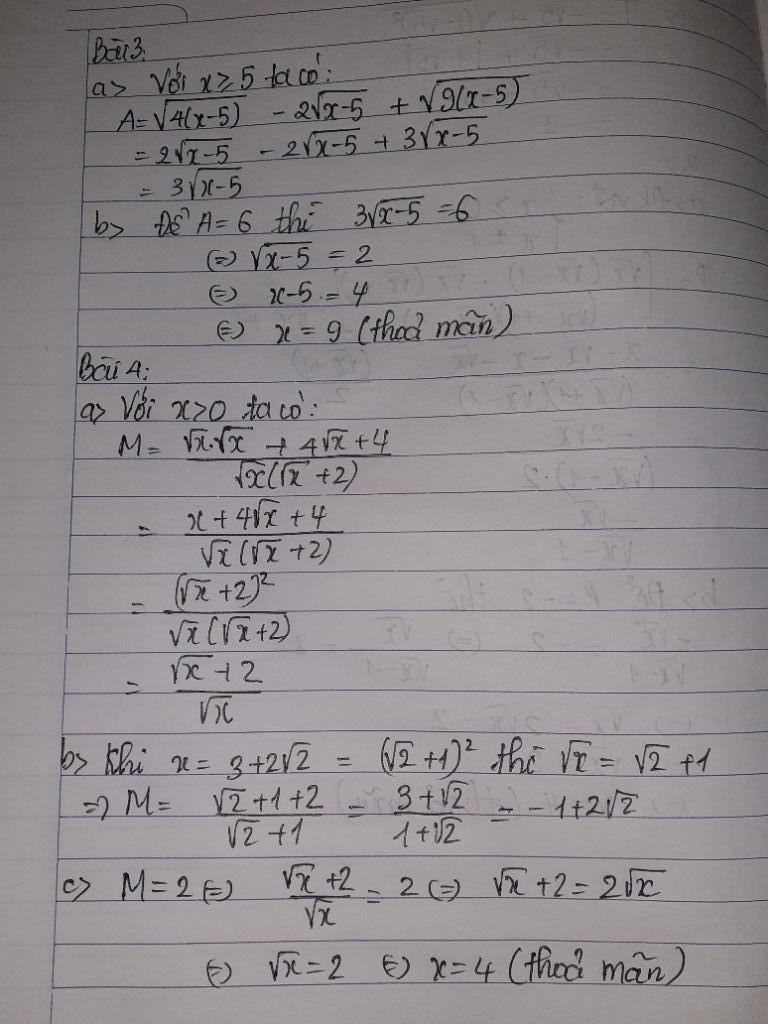 Bài 3:
a> Với x ≥ 5 ta có:
A = √4(x-5) - 2√x-5 + √9(x-5)
= 2√x-5 - 2√x-5 + 3√x-5
= 3√x-5
b> Để A = 6 thì 3√x-5 = 6
(=) √x-5 = 2
(=) x-5 = 4
(=) x = 9 (thoả mãn)
Bài 4:
a> Với x>0 ta có:
M = (√x.√x + 4√x + 4) / (√x(√x + 2))
= (x + 4√x + 4) / (√x(√x + 2))
= (√x + 2)² / (√x(√x + 2))
= (√x + 2) / √x
b> Khi x = 3 + 2√2 = (√2 + 1)² thì √x = √2 + 1
=> M = (√2 + 1 + 2) / (√2 + 1) = (3 + √2) / (1 + √2) = -1 + 2√2
c> M = 2 (=) (√x + 2) / √x = 2 (=) √x + 2 = 2√x
(=) √x = 2 (=) x = 4 (thoả mãn)